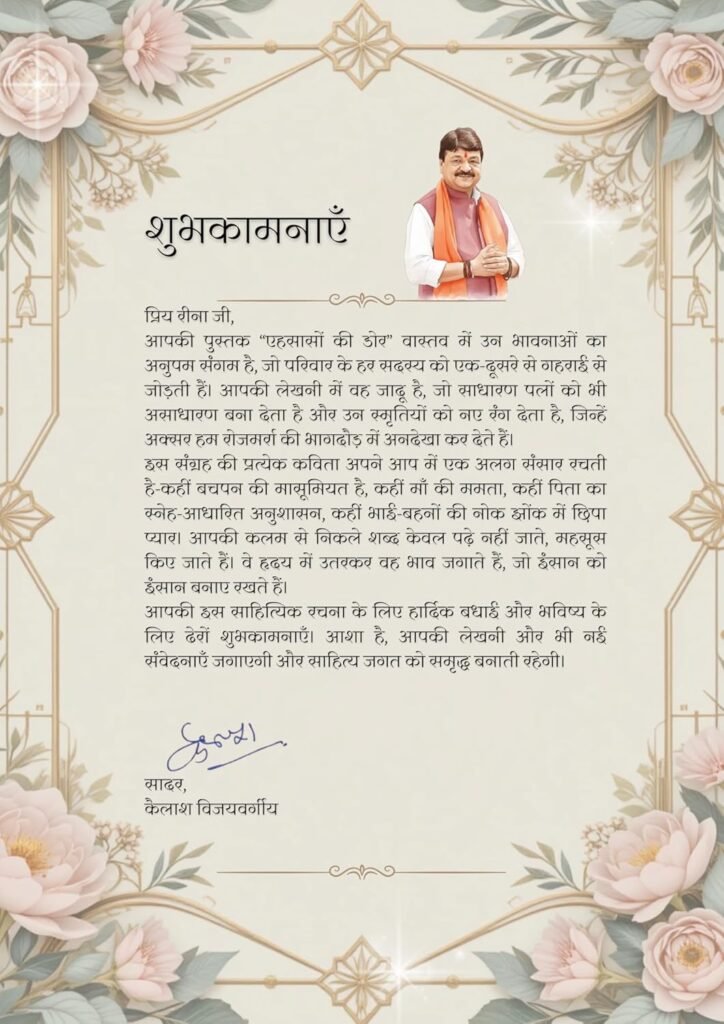 शुभकामनाएँ
प्रिय रीना जी,
आपकी पुस्तक “एहसासों की डोर” वास्तव में उन भावनाओं का
अनुपम संगम है, जो परिवार के हर सदस्य को एक-दूसरे से गहराई से
जोड़ती हैं। आपकी लेखनी में वह जादू है, जो साधारण पलों को भी
असाधारण बना देता है और उन स्मृतियों को नए रंग देता है, जिन्हें
अक्सर हम रोजमर्रा की भागदौड़ में अनदेखा कर देते हैं।
इस संग्रह की प्रत्येक कविता अपने आप में एक अलग संसार रचती
है-कहीं बचपन की मासूमियत है, कहीं माँ की ममता, कहीं पिता का
स्नेह-आधारित अनुशासन, कहीं भाई-बहनों की नोक झोंक में छिपा
प्यार। आपकी कलम से निकले शब्द केवल पढ़े नहीं जाते, महसूस
किए जाते हैं। वे हृदय में उतरकर वह भाव जगाते हैं, जो इंसान को
इंसान बनाए रखते हैं।
आपकी इस साहित्यिक रचना के लिए हार्दिक बधाई और भविष्य के
लिए ढेरों शुभकामनाएँ। आशा है, आपकी लेखनी और भी नई
संवेदनाएँ जगाएगी और साहित्य जगत को समृद्ध बनाती रहेगी।
सादर,
कैलाश विजयवर्गीय